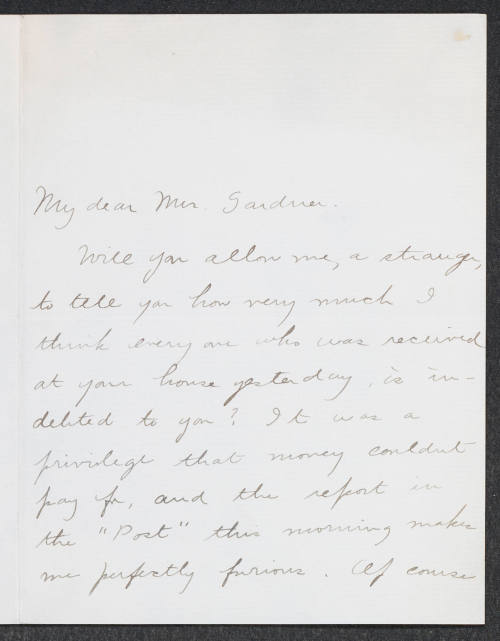 My dear Mrs. Gardner.
Will you allow me, a stranger,
to tell you how very much I
think every one who was received
at your house yesterday, is in-
debted to you? It was a
privilege that money couldn't
pay for, and the report in
the "Post" this morning makes
me perfectly furious. Of course